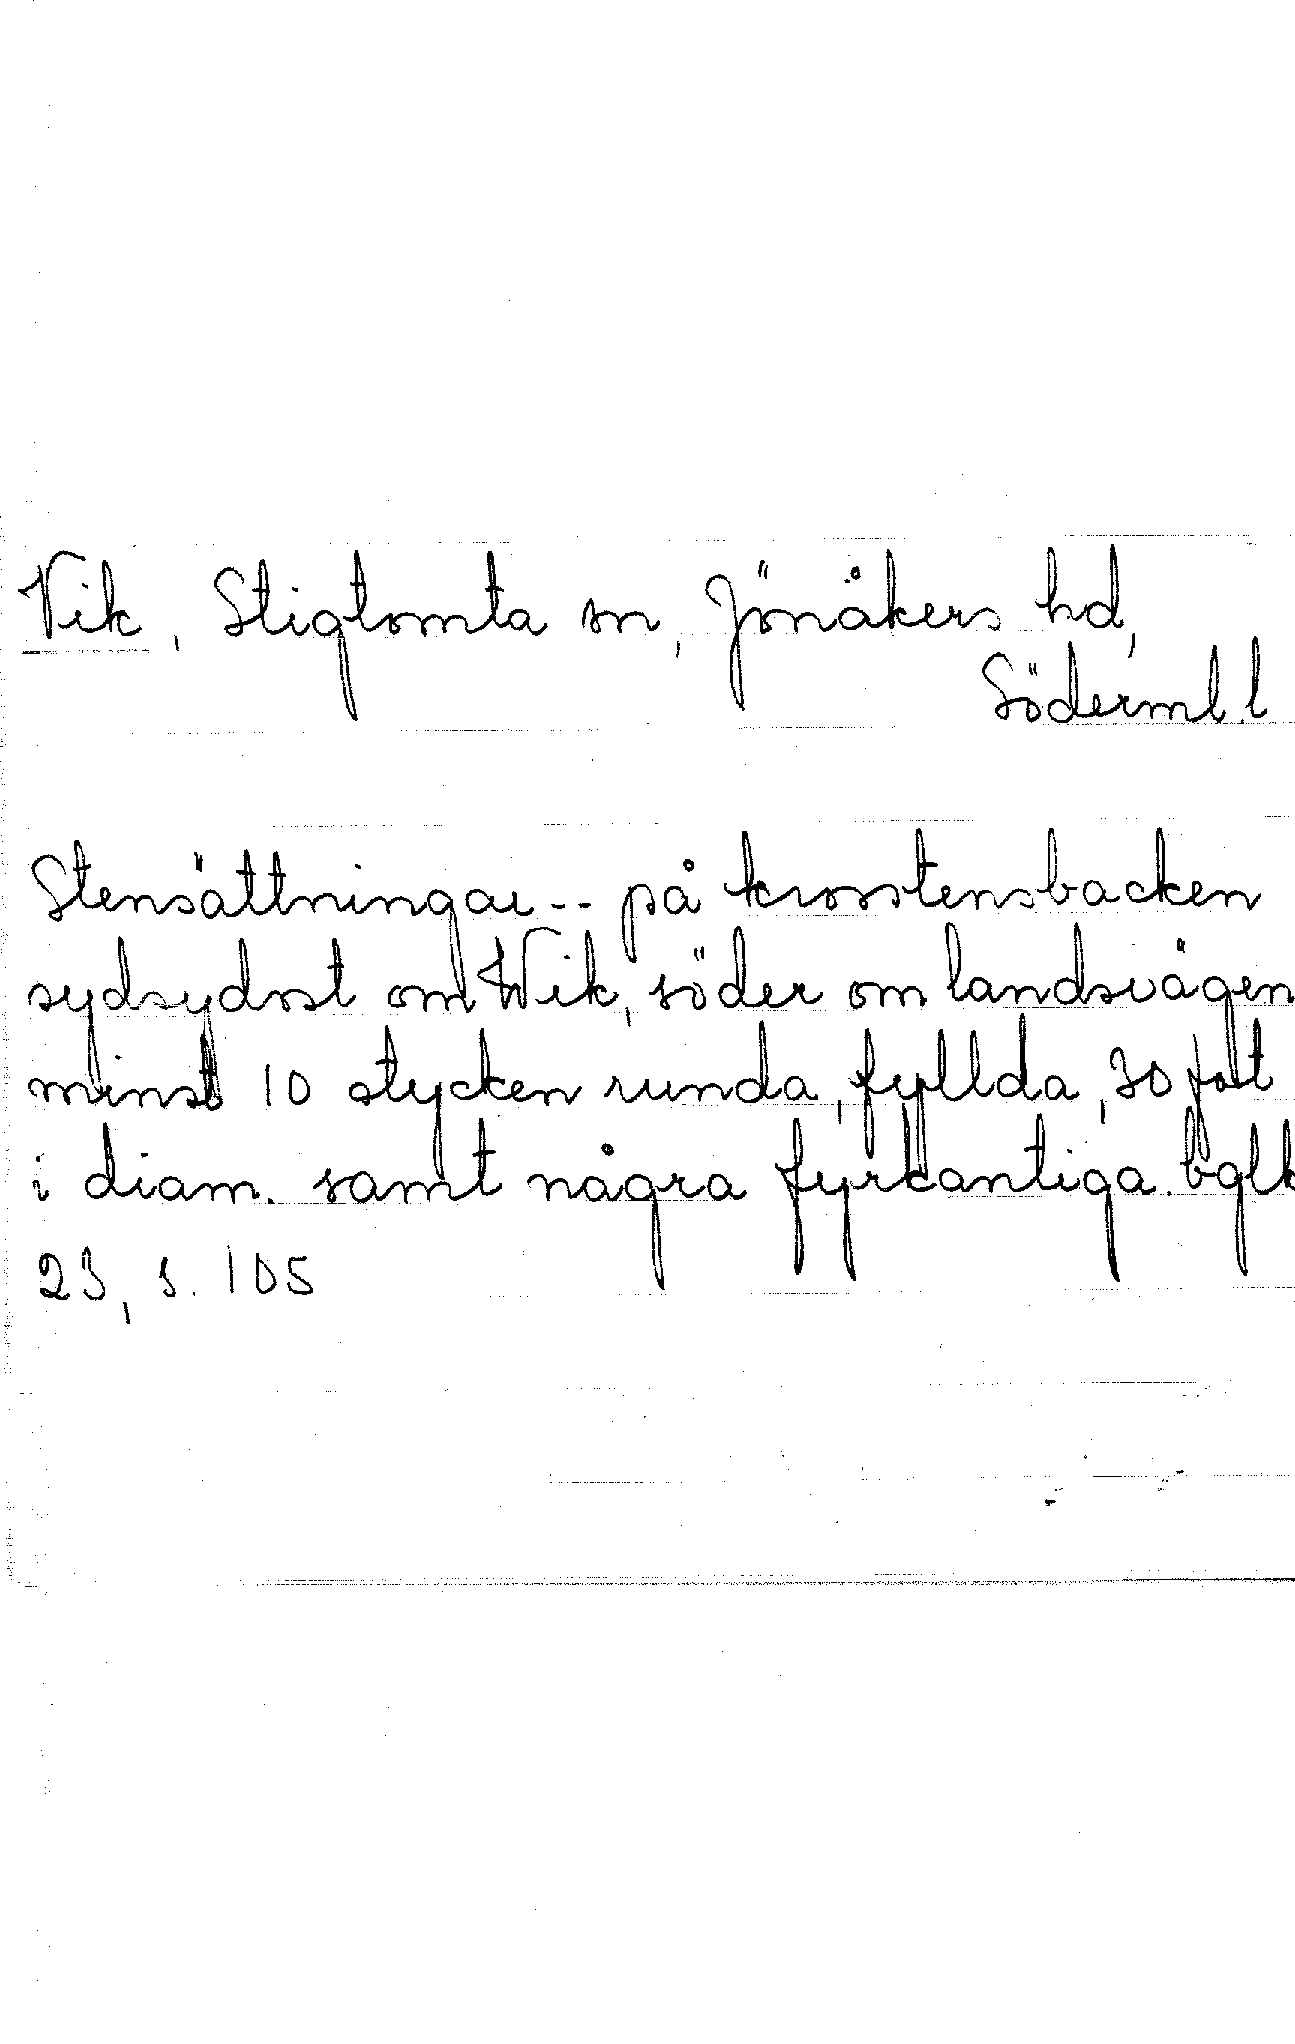 Vik, Stigtomta sn, Jönåkers hd,
Söderml. l
Stensättningar -- på krosstensbacken
sydsydost om Wik, söder om landsvägen
minst 10 stycken runda, fyllda, 30 fot
i diam. samt några fyrkantiga. bglk
23, s. 105